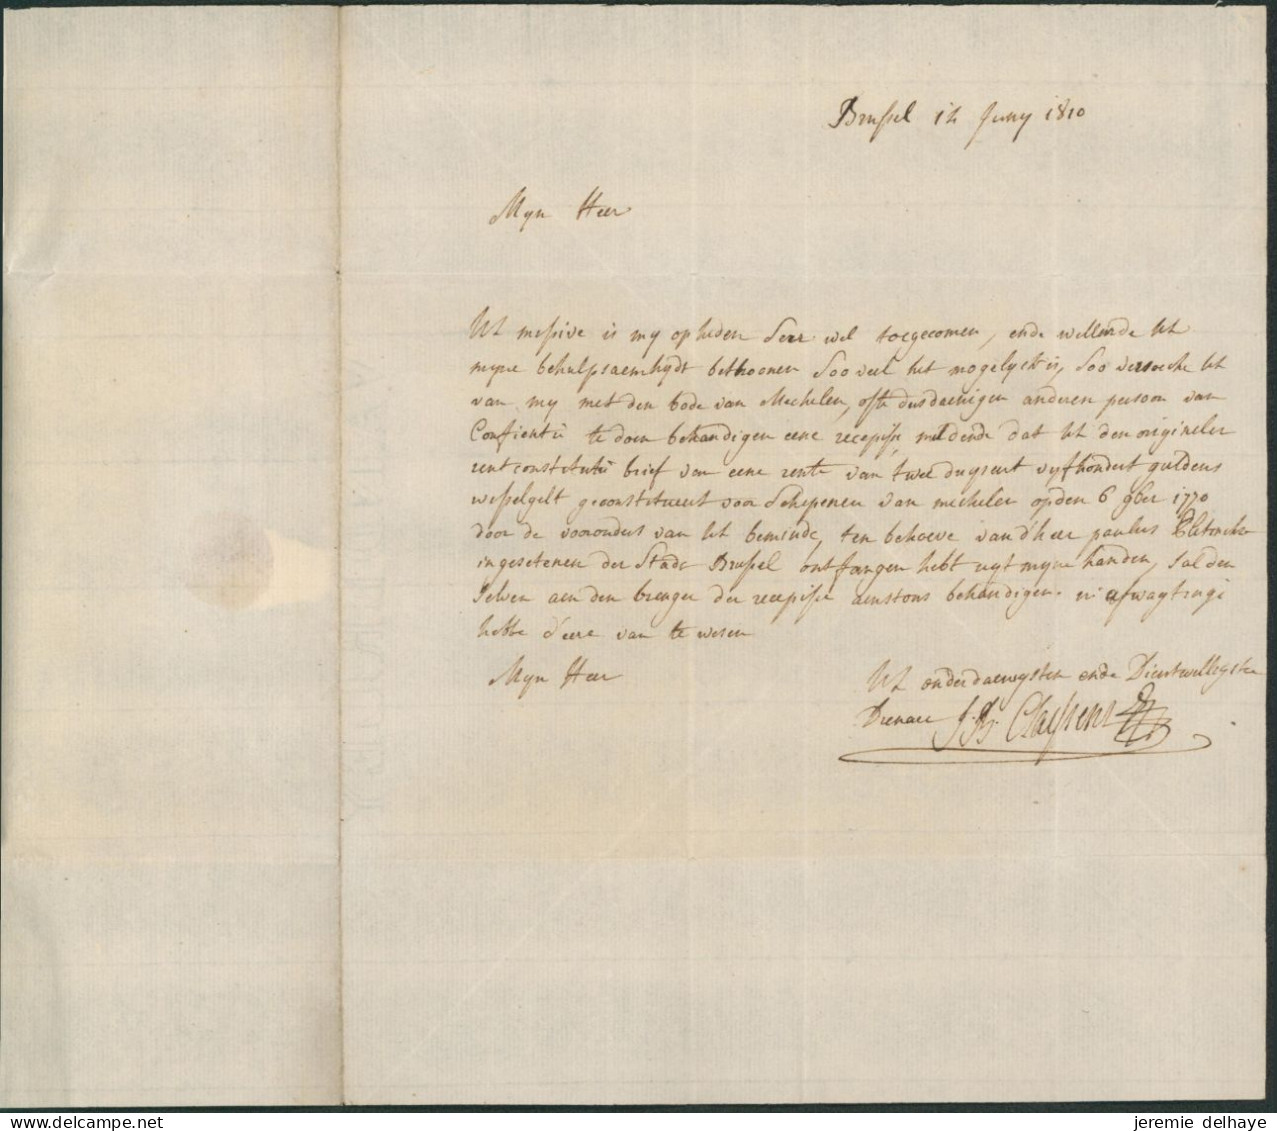 Brussel 12 Juny 1810
Myn Heer
Ul messive is my op heden seer wel toegecomen, ende willende Ul
myne behulpsaemhydt bethoonen soo veel het mogelyck is, soo versoecke Ul
van my met den bode van Mechelen, ofte dusdaenigen anderen persoon van
Confientie te doen behandigen eene recepisse meldende dat Ul den originelen
rentconstitutie brief van eene rente van twee duysent vyfhondert guldens
wisselgelt geconstitueert voor Schepenen van mechelen op den 6 9ber 1770
door de voorouders van Ul beminde, ten behoeve van d'heer paulus
ingesetenen der Stadt Brussel ontfangen hebt uyt myne handen, sal den
selven aen den brenger der recepisse aenstons behandigen. in afwagtinge
hebbe d'eere van te wesen
Myn Heer
Ul onderdaenigsten ende Dienstwillegsten
Dienaer J. B. Claessens
jeremie delhaye